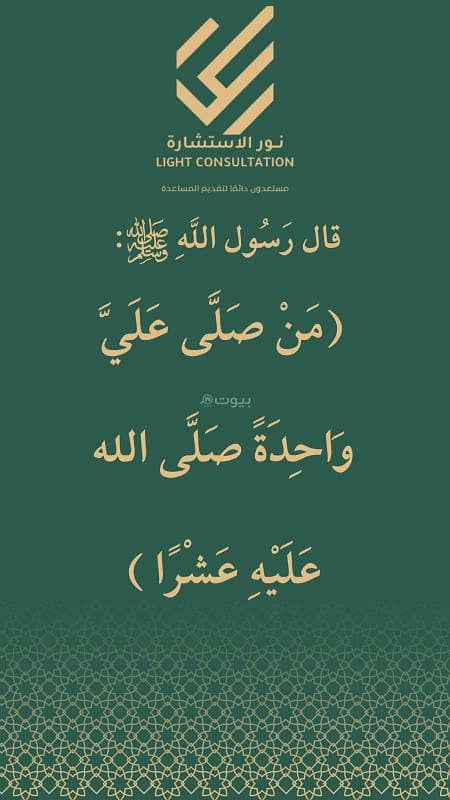 نور الاستشارة
LIGHT CONSULTATION
مستعدون دائمًا لتقديم المساعدة
قال رَسُول اللَّهِ ﷺ:
(مَنْ صَلَّى عَلَيَّ
بيوت
وَاحِدَةً صَلَّى الله
عَلَيْهِ عَشْرًا )